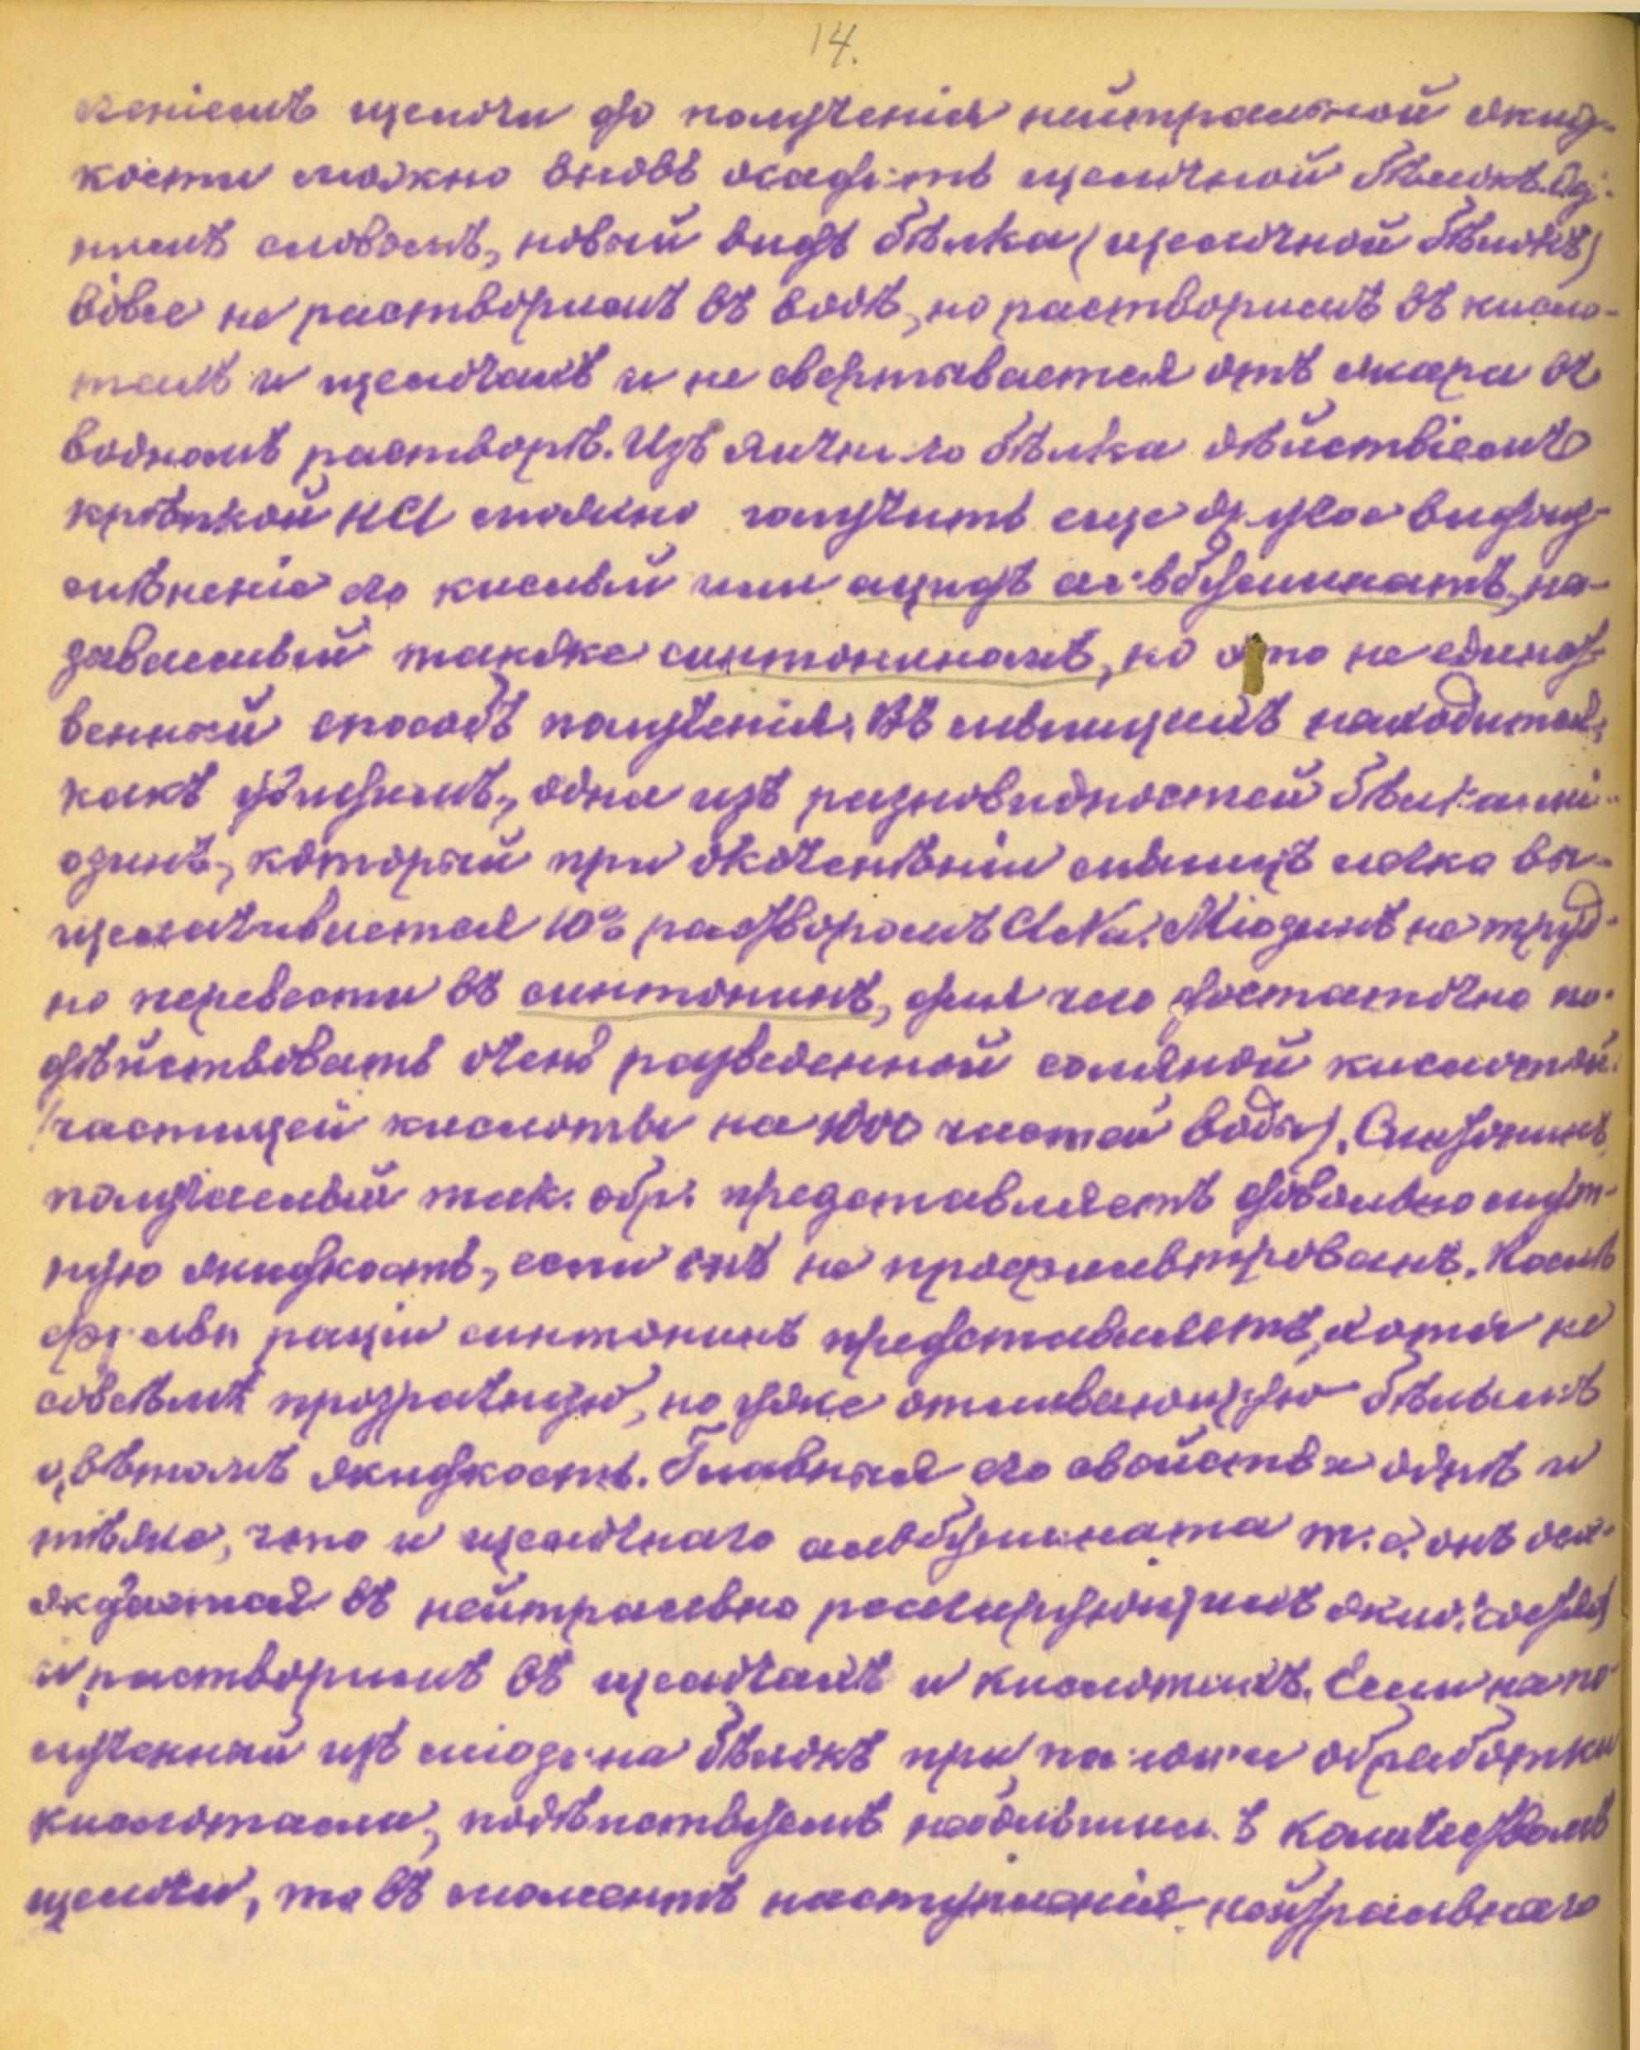 14.
леніемъ щелочи до полученія нейтральной жид-
кости можно вновь осадить щелочной бѣлокъ. Од-
нимъ словомъ, новый видъ бѣлка (щелочной бѣлокъ)
вовсе не растворимъ въ водѣ, но растворимъ въ кисло-
тахъ и щелочахъ и не свертывается отъ жара въ
водномъ растворѣ. Изъ яичного бѣлка дѣйствіемъ
крѣпкой HCl можно получить еще другое видоиз-
мѣненіе его кислый или ацидъ альбуминатъ, на-
зываемый также синтониномъ, но это не единст-
венный способъ полученія. Въ мышцахъ находится,
какъ увидимъ, одна изъ разновидностей бѣлка мі-
озинъ, который при окоченѣніи мышцъ легко вы-
щелачивается 10% растворомъ ClNa. Міозинъ не труд-
но перевести въ синтонинъ, для чего достаточно по-
дѣйствовать очень разведенной соляной кислотой.
(частицей кислоты на 1000 частей воды). Синтонинъ
получаемый так. обр. представляетъ довольно мут-
ную жидкость, если онъ не профильтрованъ. Послѣ
фильтраціи синтонинъ представляетъ, хотя не
совсѣмъ прозрачную, но уже отливающую бѣлымъ
цвѣтомъ жидкость. Главныя его свойства однѣ и
тѣже, что и щелочнаго альбумината т. е. онъ оса-
ждается въ нейтрально реагирующихъ жид.
и растворимъ въ щелочахъ и кислотахъ. Если на по-
лученный изъ міозина бѣлокъ при помощи обработки
кислотами, подѣйствуемъ небольшимъ количествомъ
щелочи, то въ моментъ наступленія нейтральнаго